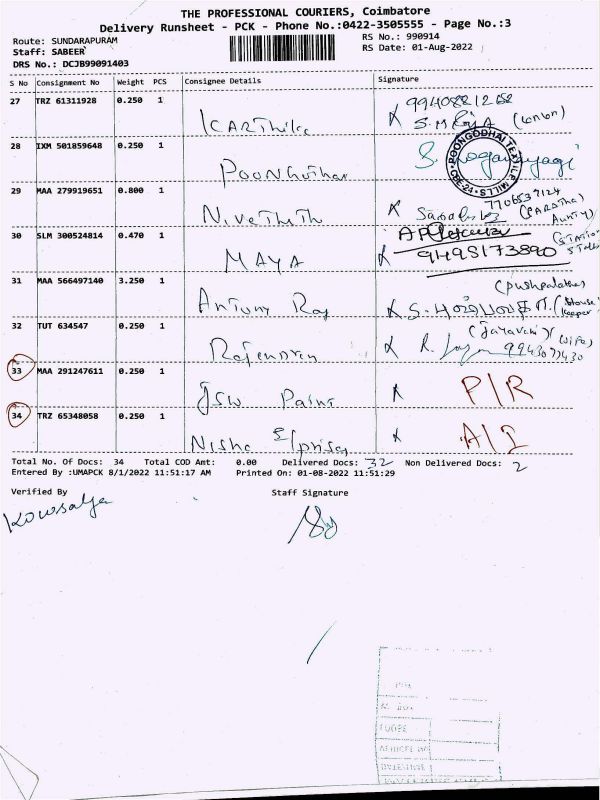 THE PROFESSIONAL COURIERS, Coimbatore
Delivery Runsheet - PCK - Phone No.:0422-3505555 - Page No.:3
Route: SUNDARAPURAM
RS No.: 990914
Staff: SABEER
RS Date: 01-Aug-2022
DRS No.: DCJB99091403
S No Consignment No Weight PCS Consignee Details Signature
27 TRZ 61311928 0.250 1 Karthika
S.M
28 IXM 501859648 0.250 1 Poonguthai
POONGODHAI TEXTILE MILLS
CBE-24
29 MAA 279919651 0.800 1 Nivethith
7706539124
Aunty)
30 SLM 300524814 0.470 1 MAYA
9495173890
31 MAA 566497140 3.250 1 Antony Raj
(Pushpalatha)
(House keeper)
32 TUT 634547 0.250 1 Rajendren
(wife)
33 MAA 291247611 0.250 1 JSW Paint P/R
34 TRZ 65348058 0.250 1 Nisha A/I
Total No. Of Docs: 34 Total COD Amt: 0.00 Delivered Docs: 32 Non Delivered Docs: 2
Entered By :UMAPCK 8/1/2022 11:51:17 AM Printed On: 01-08-2022 11:51:29
Verified By Staff Signature
Kowsalya